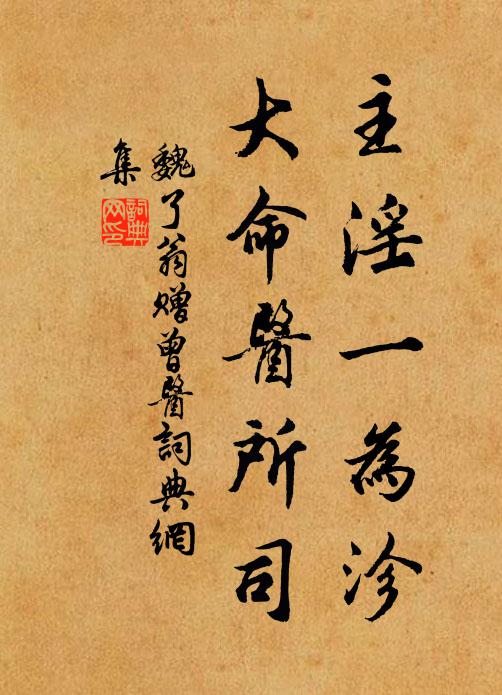 主淫一為沴
大命醫所司
魏了翁贈曾醫詞典網
集
詞典网印